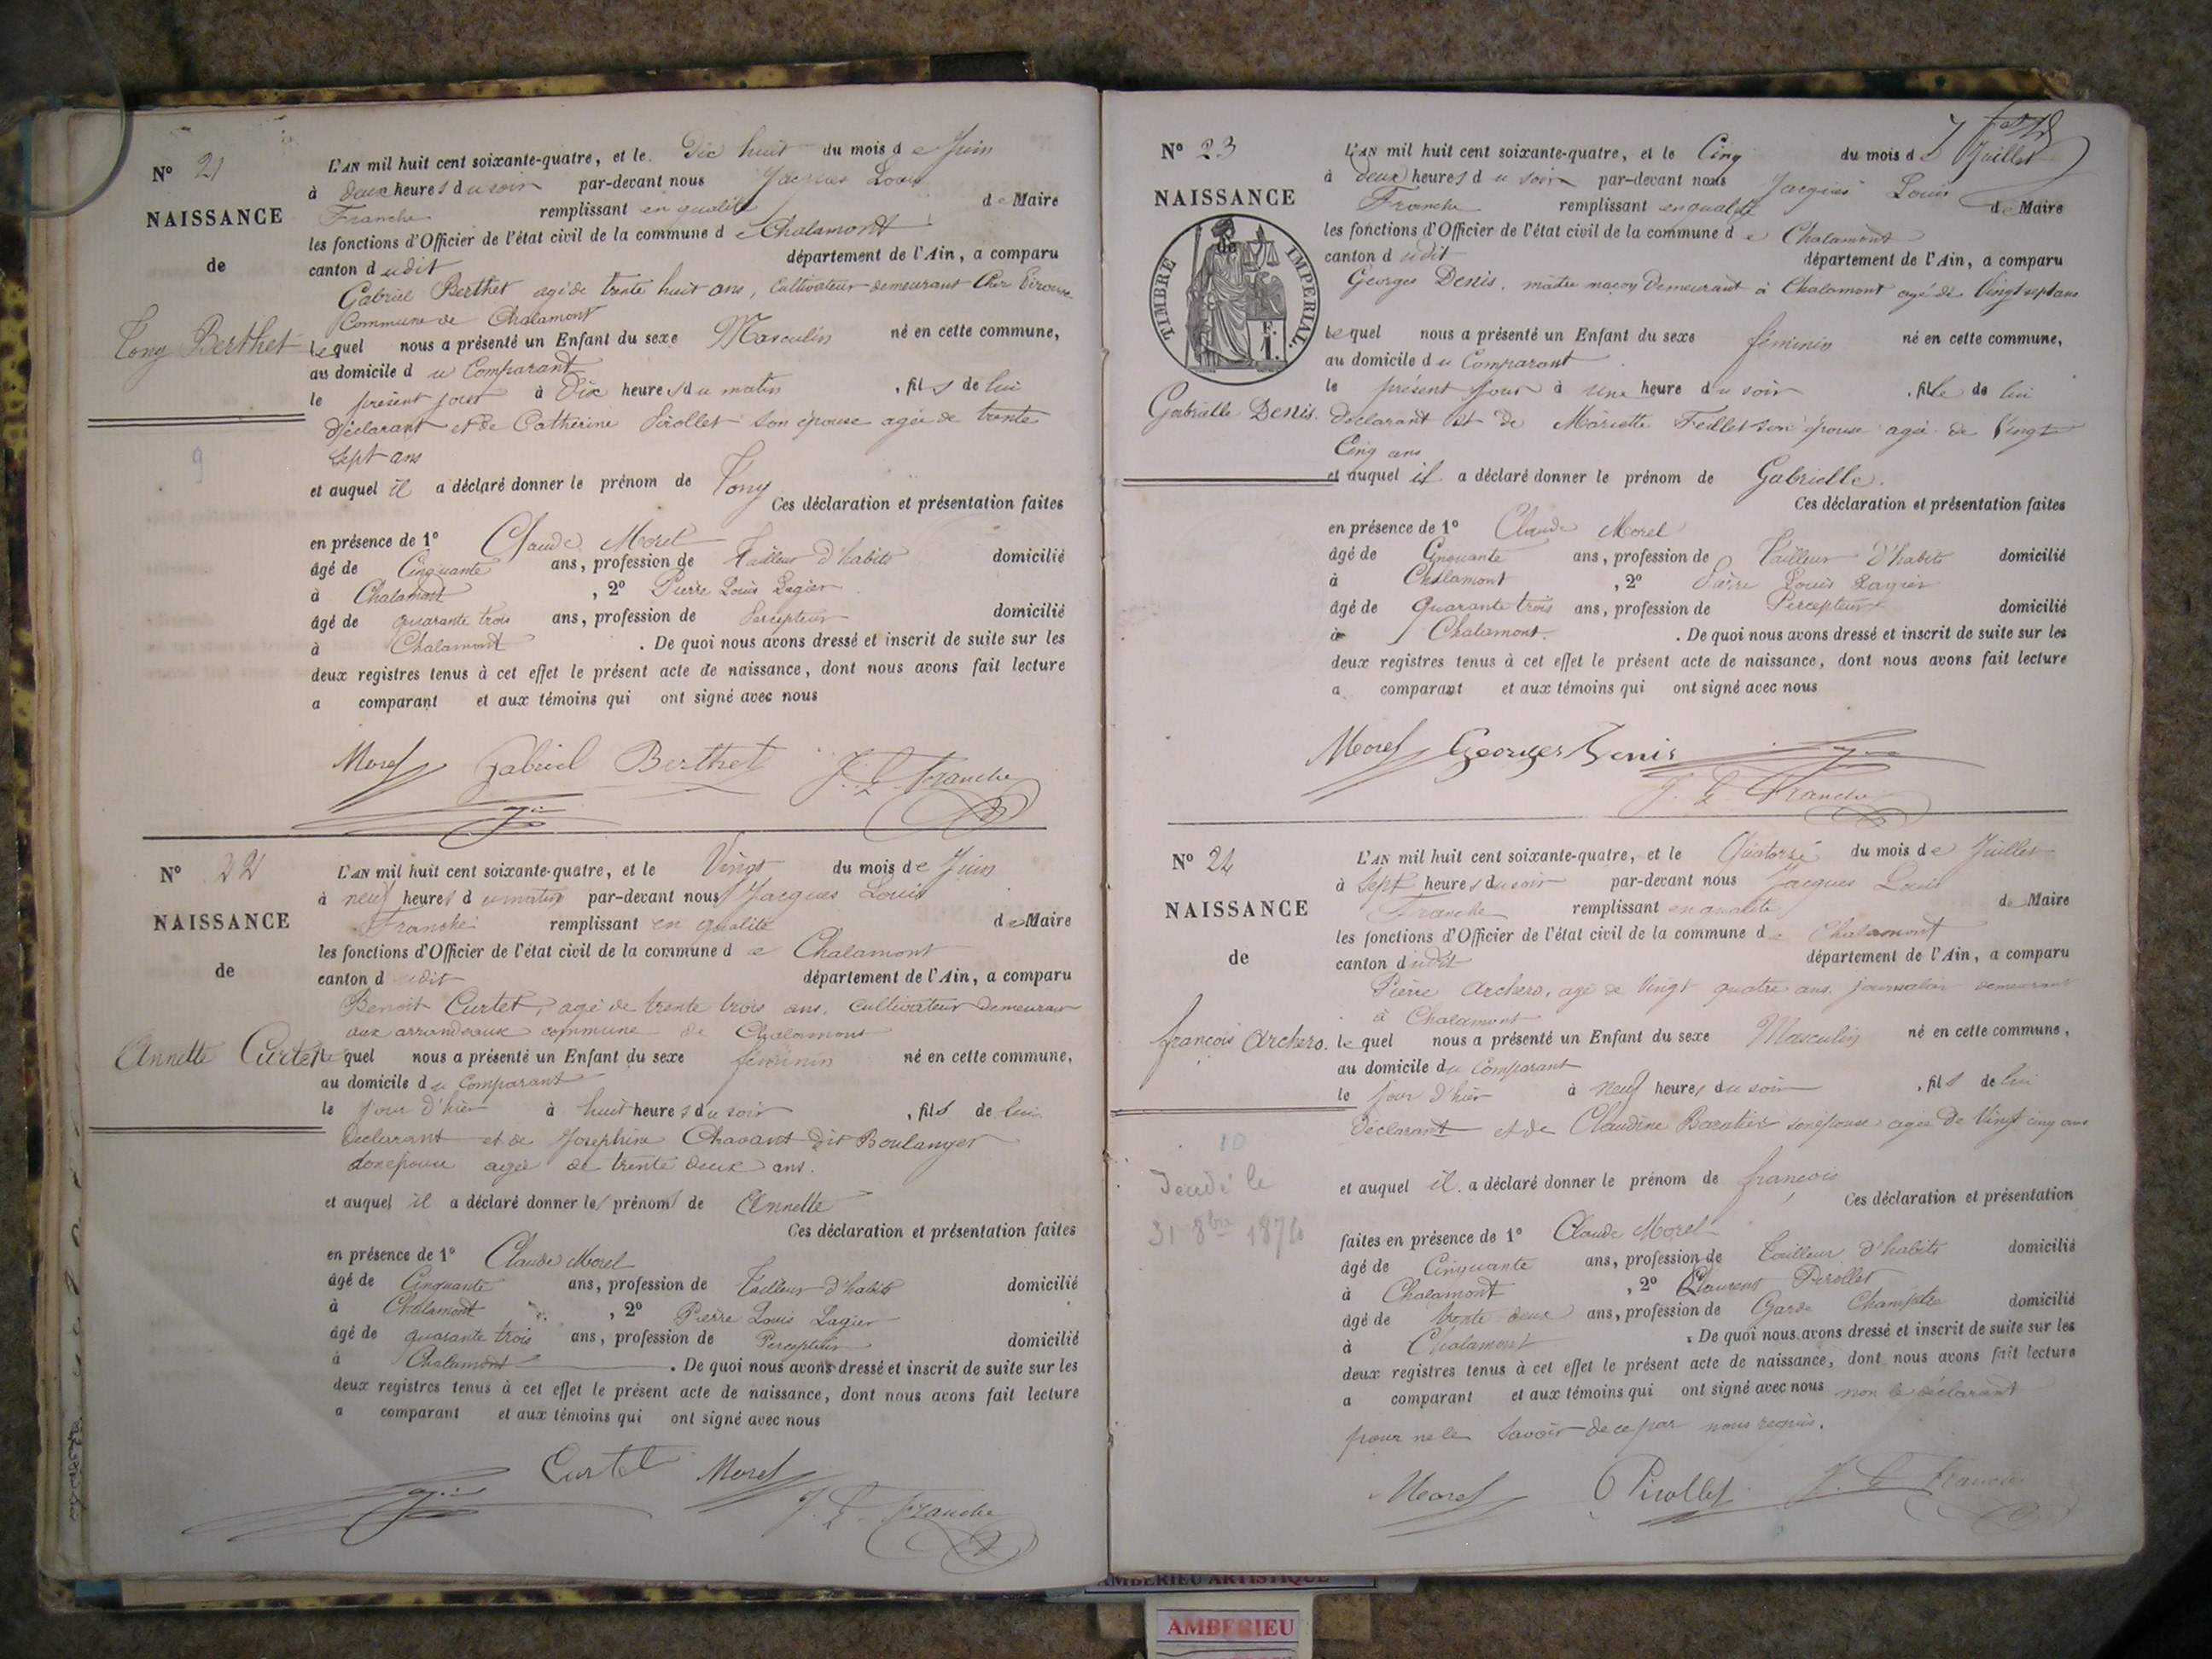 N° 21
NAISSANCE
de
Tony Berthet
9
L'AN mil huit cent soixante-quatre, et le Dix huit du mois de Juin
à deux heures du soir par-devant nous Jacques Louis
Franche remplissant en qualité de Maire
les fonctions d'Officier de l'état civil de la commune de Chalamont
canton dudit département de l'Ain, a comparu
Gabriel Berthet agé de trente huit ans, Cultivateur demeurant
Commune de Chalamont
Lequel nous a présenté un Enfant du sexe Masculin né en cette commune,
au domicile du Comparant
le présent jour à Dix heures du matin, fils de lui
Déclarant et de Catherine Pirollet son épouse agée de trente
sept ans
et auquel il a déclaré donner le prénom de Tony
Ces déclaration et présentation faites
en présence de 1° Claude Morel
âgé de Cinquante ans, profession de Tailleur d'habits domicilié
à Chalamont, 2° Pierre Louis Lagier
âgé de quarante trois ans, profession de Percepteur domicilié
à Chalamont. De quoi nous avons dressé et inscrit de suite sur les
deux registres tenus à cet effet le présent acte de naissance, dont nous avons fait lecture
a comparant et aux témoins qui ont signé avec nous
Morel Gabriel Berthet J. L. Franche
N° 22
NAISSANCE
de
Annette Curtet
L'AN mil huit cent soixante-quatre, et le Vingt du mois de Juin
à neuf heures du matin par-devant nous Jacques Louis
Franche remplissant en qualité de Maire
les fonctions d'Officier de l'état civil de la commune de Chalamont
canton dudit département de l'Ain, a comparu
Benoit Curtet, agé de trente trois ans, cultivateur demeurant
aux commune de Chalamont
lequel nous a présenté un Enfant du sexe féminin né en cette commune,
au domicile du Comparant
le jour d'hier à huit heures du soir, fils de lui
Declarant et de Josephine Chavant dit Boulanger
son epouse agée de trente deux ans.
et auquel il a déclaré donner le prénom de Annette
Ces déclaration et présentation faites
en présence de 1° Claude Morel
âgé de Cinquante ans, profession de Tailleur d'habits domicilié
à Chalamont, 2° Pierre Louis Lagier
âgé de quarante trois ans, profession de Percepteur domicilié
à Chalamont. De quoi nous avons dressé et inscrit de suite sur les
deux registres tenus à cet effet le présent acte de naissance, dont nous avons fait lecture
a comparant et aux témoins qui ont signé avec nous
Curtet Morel
J. L. Franche
N° 23
NAISSANCE
de
TIMBRE IMPERIAL.
Gabrielle Denis.
L'AN mil huit cent soixante-quatre, et le Cinq du mois de Juillet
à deux heures du soir par-devant nous Jacques Louis
Franche remplissant en qualité de Maire
les fonctions d'Officier de l'état civil de la commune de Chalamont
canton dudit département de l'Ain, a comparu
Georges Denis, maître maçon Demeurant à Chalamont agé de Vingt sept ans
lequel nous a présenté un Enfant du sexe féminin né en cette commune,
au domicile du Comparant
le présent jour à une heure du soir, fille de lui
Declarant et de Mariette Feillet son épouse agée de Vingt
Cinq ans
et auquel il a déclaré donner le prénom de Gabrielle.
Ces déclaration et présentation faites
en présence de 1° Claude Morel
âgé de Cinquante ans, profession de Tailleur d'habits domicilié
à Chalamont, 2° Pierre Louis Lagier
âgé de quarante trois ans, profession de Percepteur domicilié
à Chalamont. De quoi nous avons dressé et inscrit de suite sur les
deux registres tenus à cet effet le présent acte de naissance, dont nous avons fait lecture
a comparant et aux témoins qui ont signé avec nous
Morel Georges Denis
J. L. Franche
N° 24
NAISSANCE
de
françois Archero.
10
Décédé le
31 8bre 1874
L'AN mil huit cent soixante-quatre, et le Quatorze du mois de Juillet
à Sept heures du soir par-devant nous Jacques Louis
Franche remplissant en qualité de Maire
les fonctions d'Officier de l'état civil de la commune de Chalamont
canton dudit département de l'Ain, a comparu
Pierre Archero, agé de Vingt quatre ans, journalier demeurant
à Chalamont
lequel nous a présenté un Enfant du sexe Masculin né en cette commune,
au domicile du Comparant
le jour d'hier à neuf heures du soir, fils de lui
Déclarant et de Claudine Baratier son épouse agée De Vingt cinq ans
et auquel il a déclaré donner le prénom de françois
Ces déclaration et présentation
faites en présence de 1° Claude Morel
âgé de Cinquante ans, profession de Tailleur d'habits domicilié
à Chalamont, 2° Laurent Pirollet
âgé de trente deux ans, profession de Garde Champêtre domicilié
à Chalamont. De quoi nous avons dressé et inscrit de suite sur les
deux registres tenus à cet effet le présent acte de naissance, dont nous avons fait lecture
a comparant et aux témoins qui ont signé avec nous non le déclarant
pour ne le Savoir de ce par nous requis.
Morel Pirollet J. L. Franche
AMBERIEU ARTISTIQUE
AMBERIEU